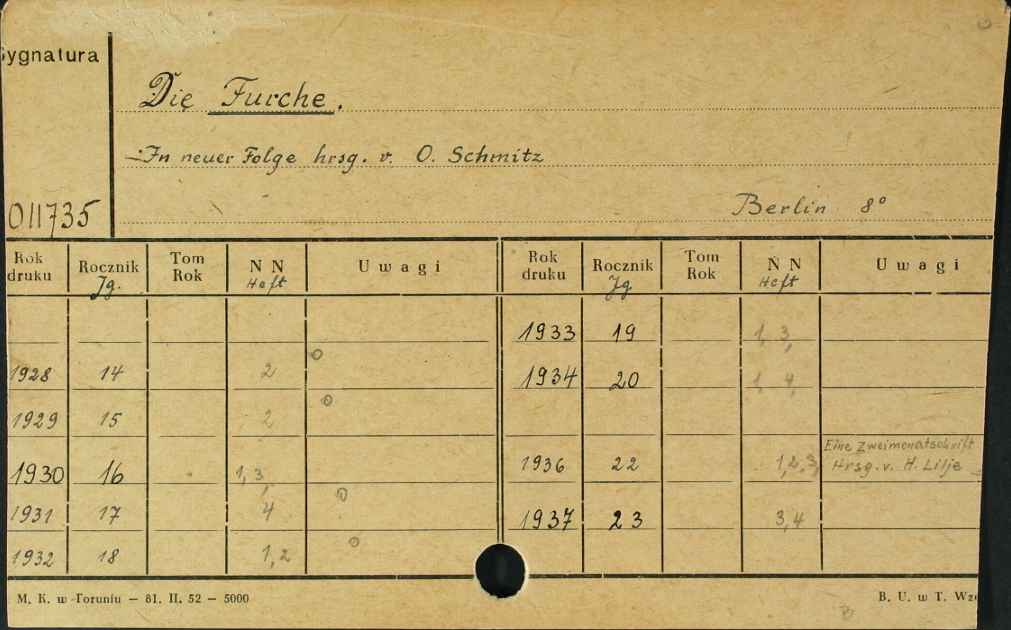 Sygnatura
Die Furche.
In neuer Folge hrsg. v. O. Schmitz
011735
Berlin 8°
Rok druku Rocznik Jg. Tom Rok N N Heft Uwagi Rok druku Rocznik Jg Tom Rok N N Heft Uwagi
1933 19 1, 3,
1928 14 2
1934 20 1, 4,
1929 15 2
Eine Zweimonatschrift
1930 16 1, 3,
1936 22 1, 2, 3, Hrsg. v. H. Lilje
1931 17 4
1937 23 3, 4
1932 18 1, 2
M. K. w Toruniu — 81. II. 52 — 5000
B. U. w T. Wz
B